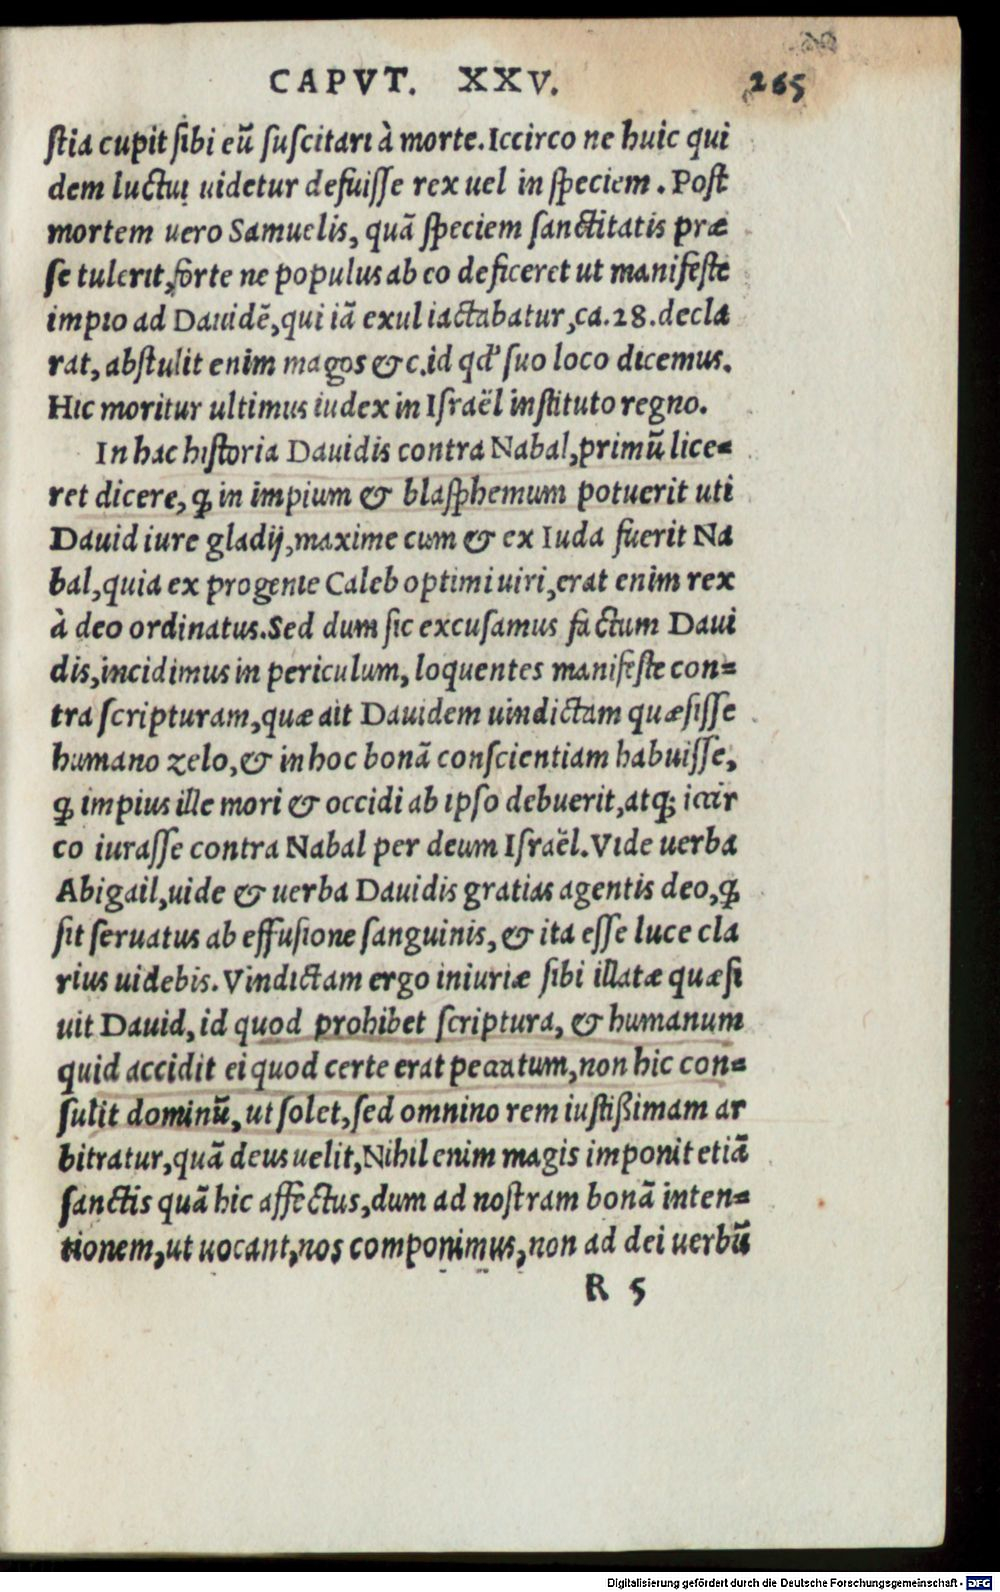 CAPVT. XXV. 265
stia cupit sibi eũ suscitari à morte. Iccirco ne huic qui
dem luctui uidetur defuisse rex uel in speciem. Post
mortem uero Samuelis, quã speciem sanctitatis præ
se tulerit, forte ne populus ab eo deficeret ut manifeste
impio ad Dauidẽ, qui iã exul iactabatur, ca. 28. decla
rat, abstulit enim magos &c. id qd' suo loco dicemus.
Hic moritur ultimus iudex in Israël instituto regno.
In hac historia Dauidis contra Nabal, primũ lice=
ret dicere, ꝙ in impium & blasphemum potuerit uti
Dauid iure gladij, maxime cum & ex Iuda fuerit Na
bal, quia ex progenie Caleb optimi uiri, erat enim rex
à deo ordinatus. Sed dum sic excusamus factum Daui
dis, incidimus in periculum, loquentes manifeste con=
tra scripturam, quæ ait Dauidem uindictam quæsisse
humano zelo, & in hoc bonã conscientiam habuisse,
ꝙ impius ille mori & occidi ab ipso debuerit, atq; iccir
co iurasse contra Nabal per deum Israël. Vide uerba
Abigail, uide & uerba Dauidis gratias agentis deo, ꝙ
sit seruatus ab effusione sanguinis, & ita esse luce cla
rius uidebis. Vindictam ergo iniuriæ sibi illatæ quæsi
uit Dauid, id quod prohibet scriptura, & humanum
quid accidit ei quod certe erat peccatum, non hic con=
sulit dominũ, ut solet, sed omnino rem iustißimam ar
bitratur, quã deus uelit, Nihil enim magis imponit etiã
sanctis quã hic affectus, dum ad nostram bonã inten=
tionem, ut uocant, nos componimus, non ad dei uerbũ
R 5
Digitalisierung gefördert durch die Deutsche Forschungsgemeinschaft - DFG